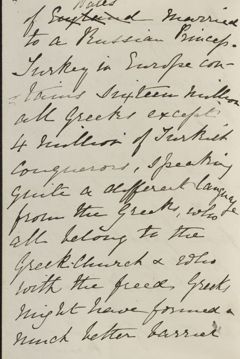 Wales
of England married
to a Russian Princess.
Turkey in Europe con-
tains sixteen million
all Greeks except
4 million of Turkish
conquerors, speaking
quite a different language
from the Greeks, who
all belong to the
Greek Church & who
with the freed Greeks
might have formed a
much better barrier